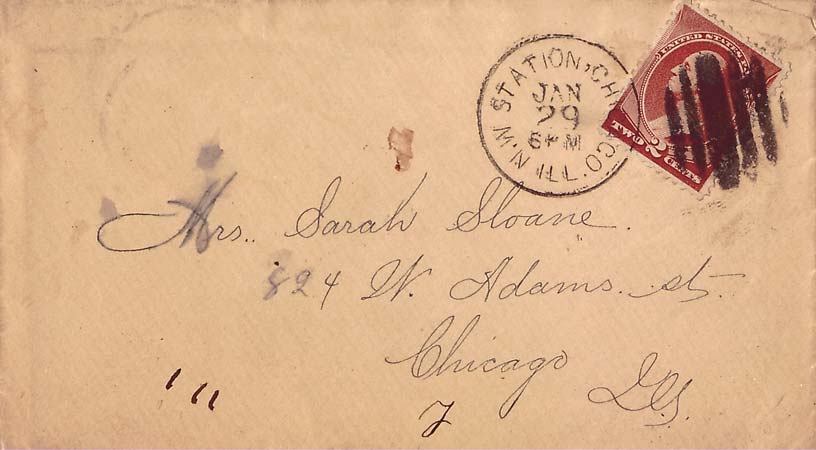 N.W. STATION, CHICAGO. ILL.
JAN
29
6 PM
UNITED STATES
TWO 2 CENTS
Mrs. Sarah Sloane.
824 W. Adams. st.
Chicago
Ills.